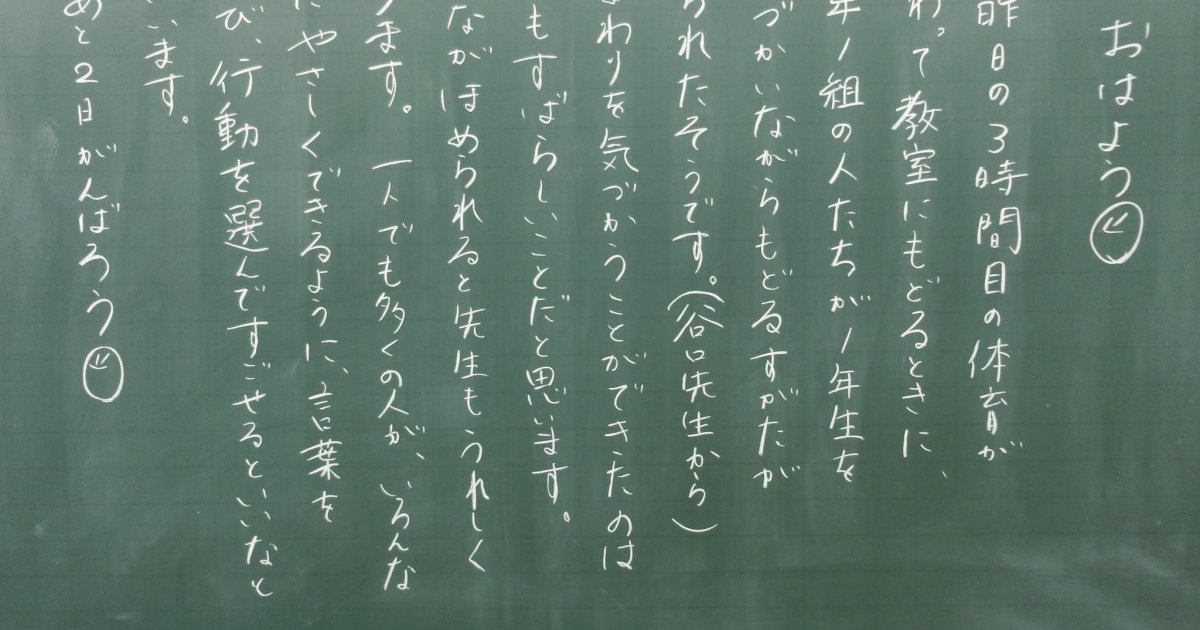 おはよう
昨日の3時間目の体育が
わって教室にもどるときに、
年1組の人たちが1年生を
づかいながらもどるすがたが
られたそうです。(谷口先生から)
まわりを気づかうことができたのは
もすばらしいことだと思います。
ながほめられると先生もうれしく
ります。一人でも多くの人が、いろんな
にやさしくできるように、言葉を
び、行動を選んですごせるといいなと
います。
あと2日がんばろう